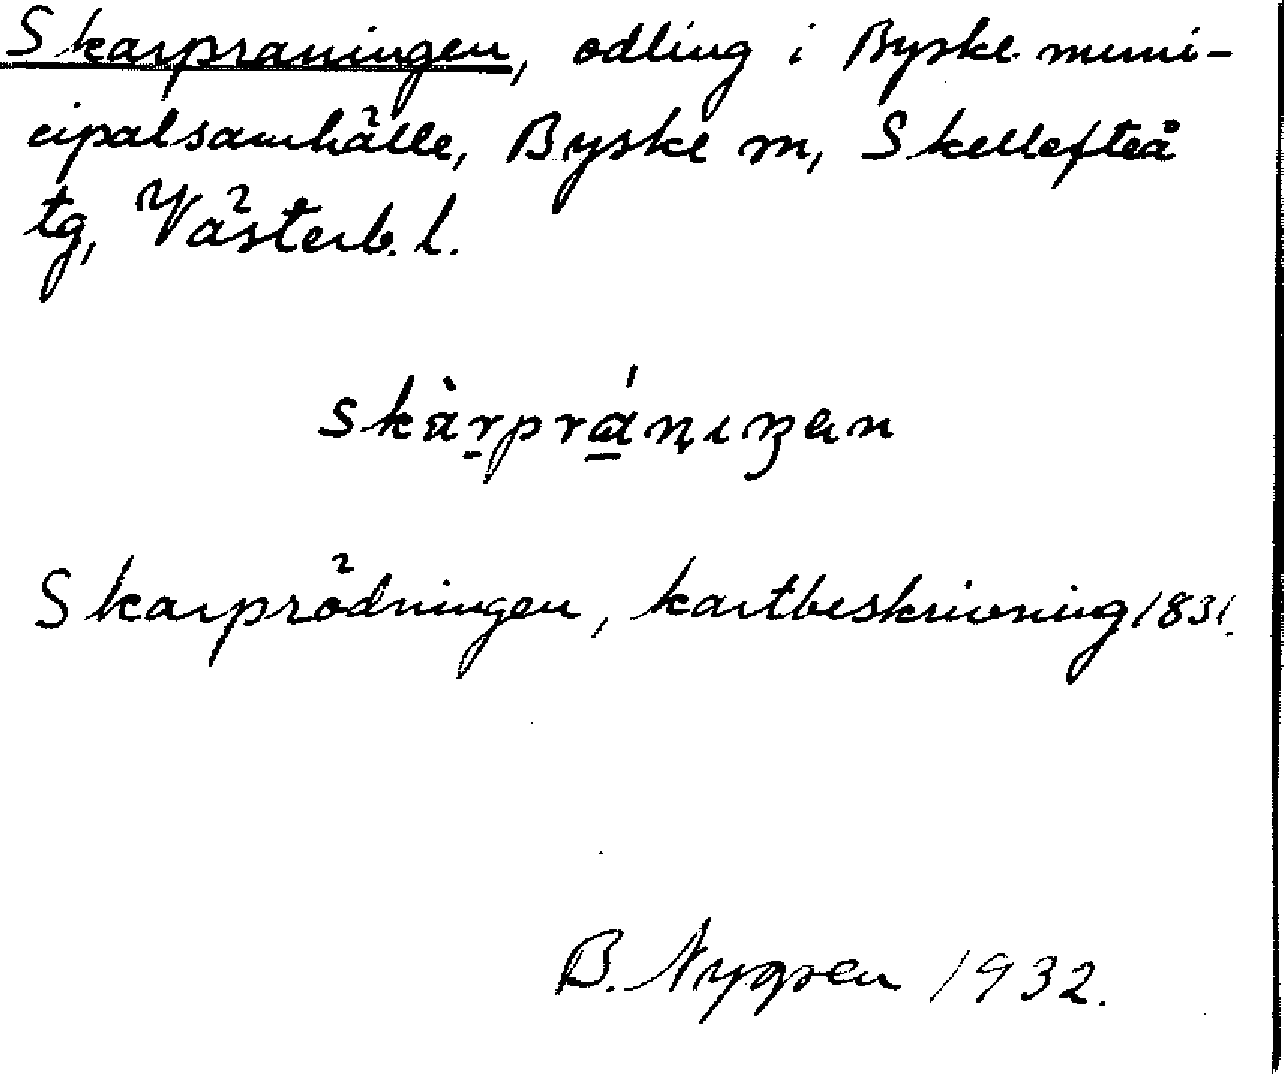 Skarpraningen, odling i Byske muni-
cipalsamhälle, Byske m, Skellefteå
tg, Västerb. l.
skàrpránıŋən
Skarprödningen, kartbeskrivning 1831.
B. Nygren 1932.